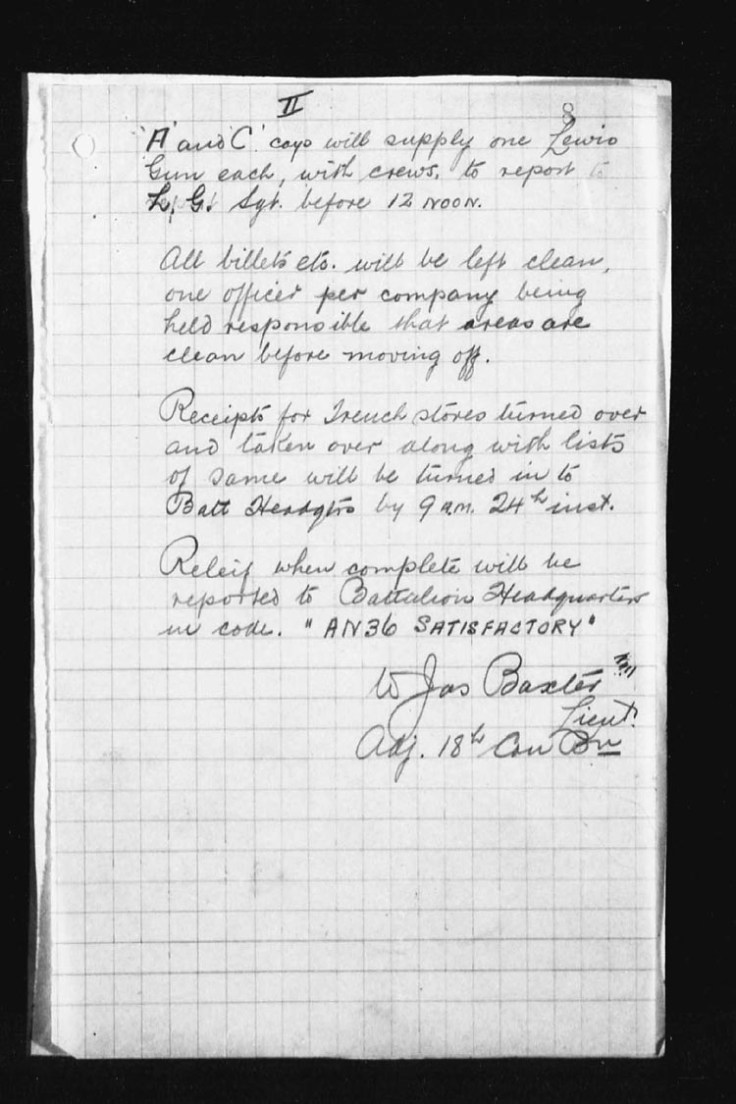 II
8
'A' and 'C' coys will supply one Lewis
Gun each, with crews, to report to
L. G. Sgt. before 12 NOON.
All billets etc. will be left clean,
one officer per company being
held responsible that areas are
clean before moving off.
Receipts for Trench stores turned over
and taken over along with lists
of same will be turned in to
Batt Headqtrs by 9 a.m. 24th inst.
Releif when complete will be
reported to Battalion Headquarters
in code. "AN36 SATISFACTORY"
W Jas Baxter
Lieut.
Adj. 18th Can Bn